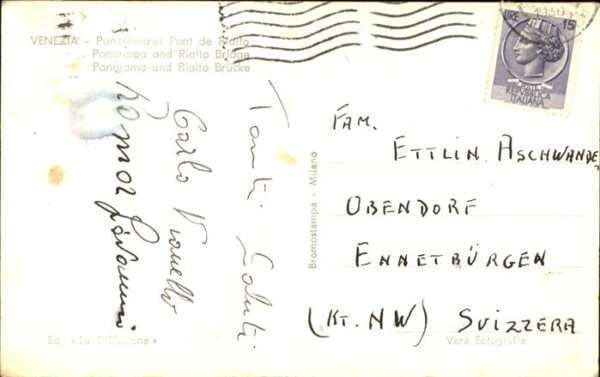 VENEZIA - Panorama et Pont de Rialto
Panorama and Rialto Bridge
Panorama und Rialto Brücke
Tanti Saluti
Carlo Vianello
LIRE 15
POSTE
REPUBBLICA
ITALIANA
Bromostampa - Milano
FAM.
ETTLIN. ASCHWANDE
OBENDORF
ENNETBÜRGEN
(KT. NW) SVIZZERA
Vera Fotografia